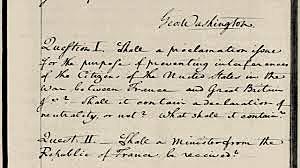 Geo Washington
Question I. Shall a proclamation issue
for the purpose of preventing interferences
of the Citizens of the United States in the
War between France and Great Britain
&c? Shall it contain a declaration of
neutrality, or not? What shall it contain?
Quest. II — Shall a Minister from the
Republic of France be received?